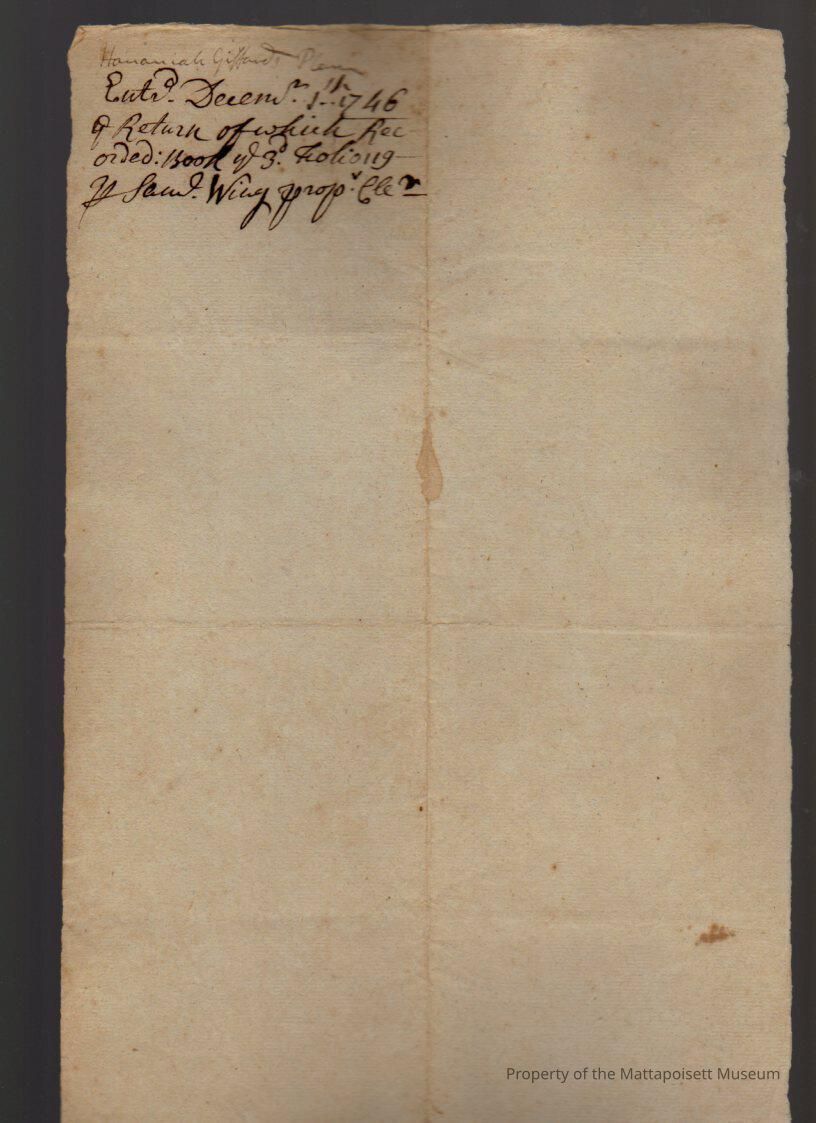 Hananiah Giffords
Entrd. Decemr. 1th: 1746
Return of which Rec
orded: Book ye 3d. Folio 119
Pr Saml. Wing propr Cler
Property of the Mattapoisett Museum